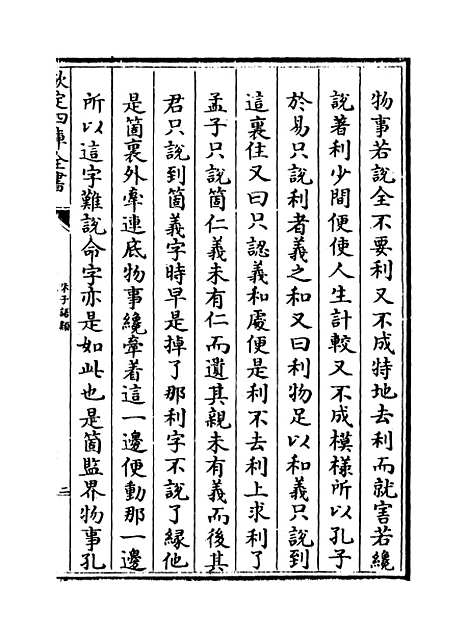 物事若說全不要利又不成特地去利而就害若纔
說著利少間便使人生計較又不成模樣所以孔子
於易只說利者義之和又曰利物足以和義只說到
這裏住又曰只認義和處便是利不去利上求利了
孟子只說箇仁義未有仁而遺其親未有義而後其
君只說到箇義字時早是掉了那利字不說了緣他
是箇裏外牽連底物事纔牽着這一邊便動那一邊
所以這字難說命字亦是如此也是箇監界物事孔
欽定四庫全書
朱子語類
三